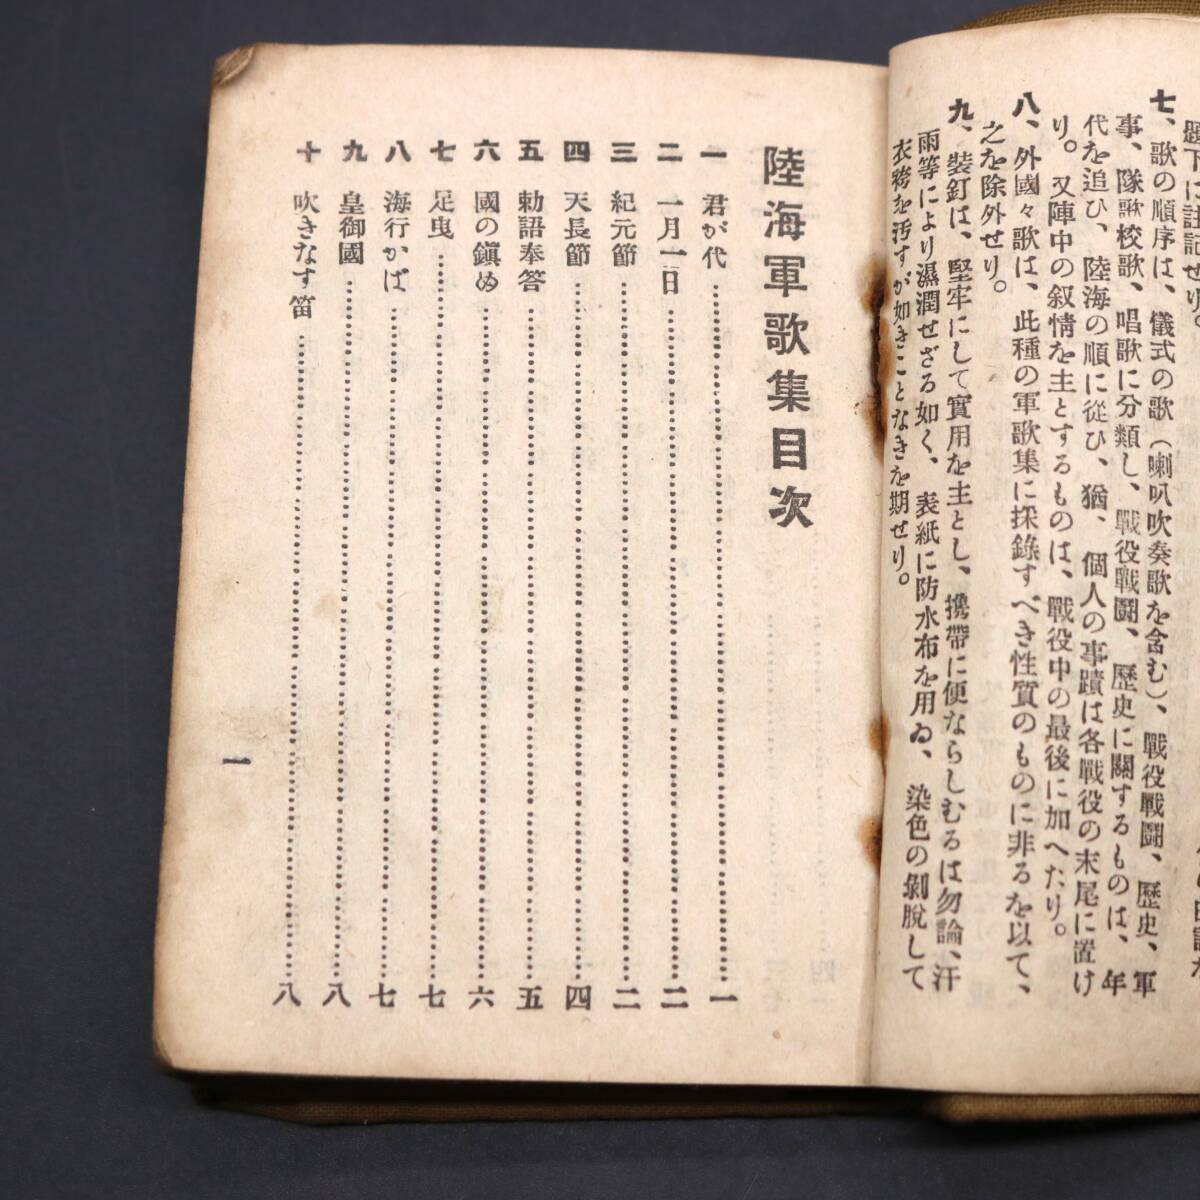 題下に註記せり。
七、歌の順序は、儀式の歌（喇叭吹奏歌を含む）、戰役戰鬪、歷史、軍
事、隊歌校歌、唱歌に分類し、戰役戰鬪、歷史に關するものは、年
代を追ひ、陸海の順に從ひ、猶、個人の事蹟は各戰役の末尾に置け
り。又陣中の叙情を主とするものは、戰役中の最後に加へたり。
八、外國々歌は、此種の軍歌集に採錄すべき性質のものに非るを以て、
之を除外せり。
九、裝釘は、堅牢にして實用を主とし、携帶に便ならしむるは勿論、汗
雨等により濕潤せざる如く、表紙に防水布を用ゐ、染色の剝脫して
衣袴を汚すが如きことなきを期せり。
陸海軍歌集目次
一 君が代……一
二 一月一日……二
三 紀元節……二
四 天長節……四
五 勅語奉答……五
六 國の鎭め……六
七 足曳……七
八 海行かば……七
九 皇御國……八
十 吹きなす笛……八
一